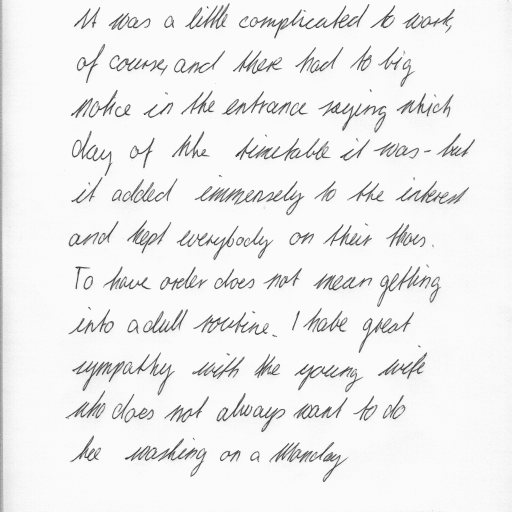 It was a little complicated to work,
of course, and there had to big
notice in the entrance saying which
day of the timetable it was - but
it added immensely to the interest
and kept everybody on their thoes.
To have order does not mean getting
into a dull routine. I habe great
sympathy with the young wife
who does not always want to do
hee washing on a Monday